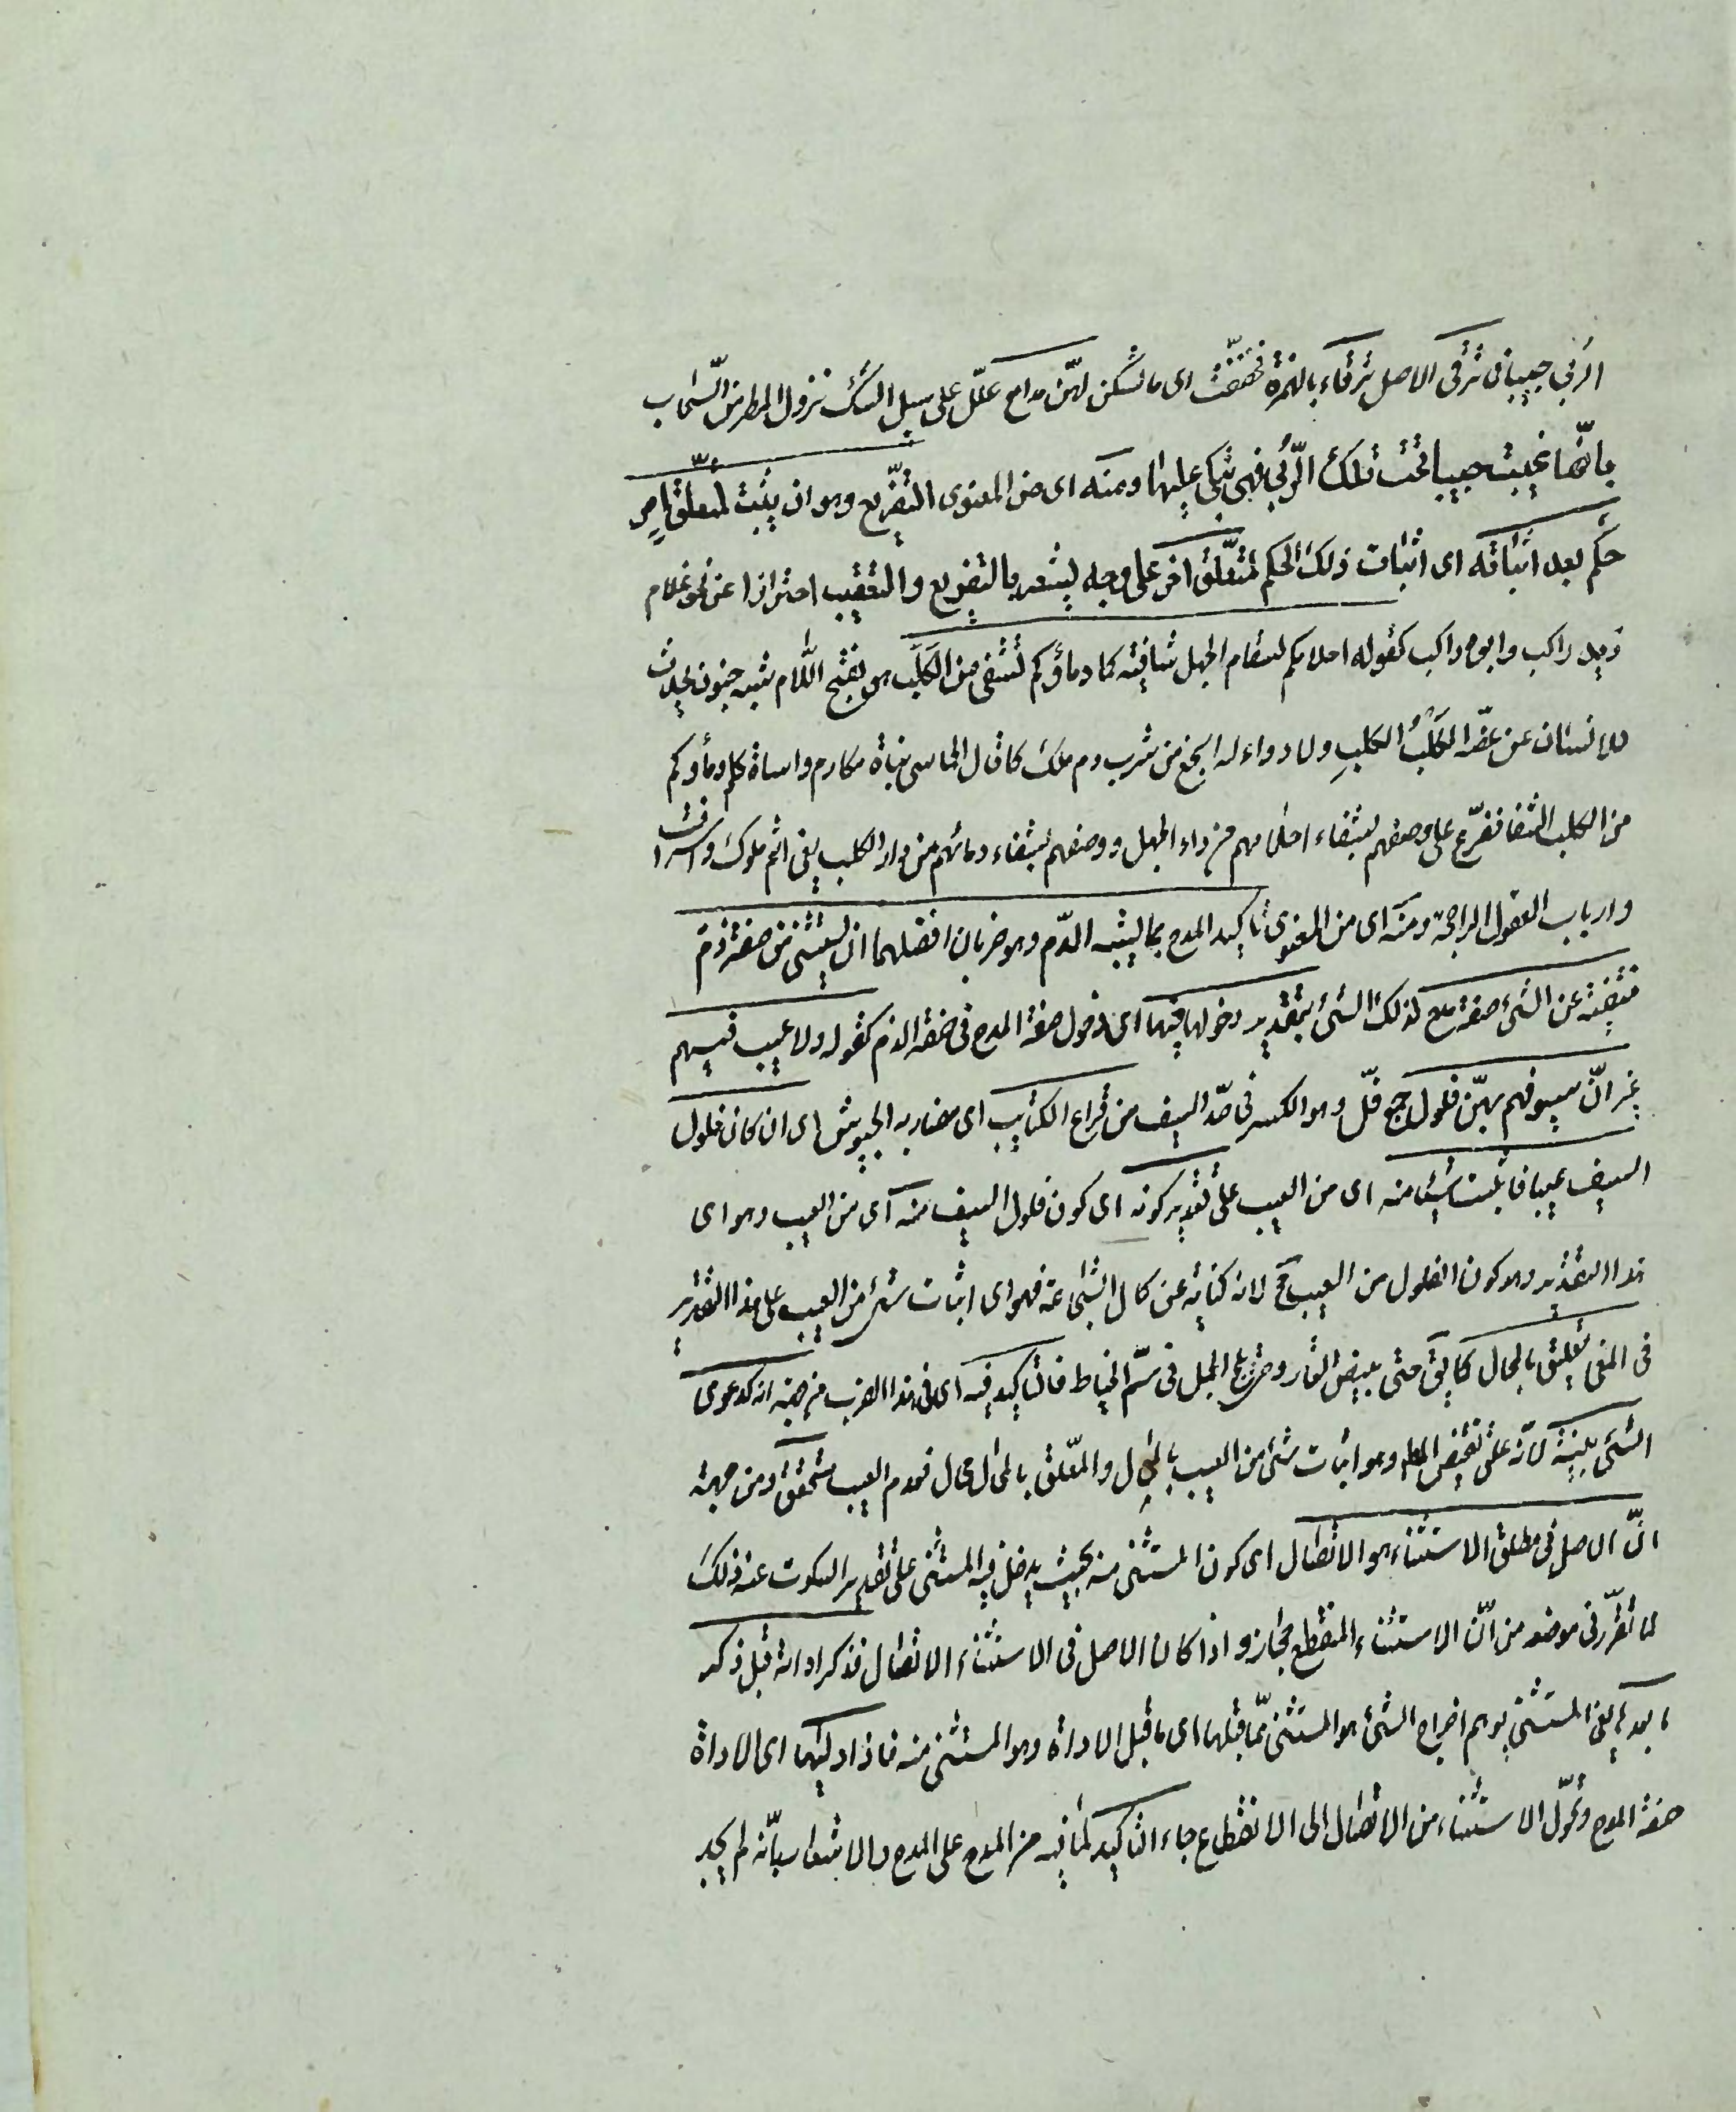 الربى حبيبا فما ترقى الاصل ترقاء بالهمزة فخففت اى ما تسكن لهن مدامع علل على سبيل الشك نزول المطر من السحاب
بانها غيبت حبيبا تحت تلك الربى فهى تبكى عليها ومنه اى من المعنوى التفريع وهو ان يثبت لمتعلق امر
حكم بعد اثباته اى اثبات ذلك الحكم لمتعلق اخر على وجه يشعر بالتفريع والتعقيب احترازا عن نحو غلام
زيد راكب وابوه راكب كقوله احلامكم لسقام الجهل شافية كما دماؤكم تشفى من الكلب هو بفتح اللام شبه جنون يحدث
للانسان عن عض الكلب الكلب ولا دواء له انجع من شرب دم ملك كما قال الحماسى بناة مكارم واساة كلم دماؤكم
من الكلب الشفا ففرع على وصفهم بشفاء احلامهم من داء الجهل ووصفهم بشفاء دمائهم من داء الكلب يعنى انتم ملوك واشراف
وارباب العقول الراجحة ومنه اى من المعنوى تاكيد المدح بما يشبه الذم وهو ضربان افضلهما ان يستثنى من صفة ذم
منفية عن الشئ صفة مدح لذلك الشئ بتقدير دخولها فيها اى دخول صفة المدح فى صفة الذم كقوله ولا عيب فيهم
غير ان سيوفهم بهن فلول جمع فل وهو الكسر فى حد السيف من قراع الكتايب اى مضاربه الجيوش اى ان كان فلول
السيف عيبا فاثبت شيئا منه اى من العيب على تقدير كونه اى كون فلول السيف منه اى من العيب وهو اى
هذا التقدير وهو كون الفلول من العيب مح لانه كناية عن كمال الشجاعة فهو اى اثبات شئ من العيب على هذا التقدير
فى المعنى تعليق بالمحال كما يق حتى يبيض القار وحتى يلج الجمل فى سم الخياط فالتاكيد فيه اى فى هذا الضرب من جهة انه كدعوى
الشئ ببينة لانه علق نقيض المط وهو اثبات شئ من العيب بالمحال والمعلق بالمحال محال فعدم العيب متحقق ومن جهة
ان الاصل فى مطلق الاستثناء هو الاتصال اى كون المستثنى منه بحيث يدخل فيه المستثنى على تقدير السكوت عنه ذلك
لما تقرر فى موضعه من ان الاستثناء المنقطع مجاز واذا كان الاصل فى الاستثناء الاتصال فذكر اداته قبل ذكر
ما بعدها يعنى المستثنى يوهم اخراج الشئ هو المستثنى مما قبلها اى ما قبل الاداة وهو المستثنى منه فاذا وليها اى الاداة
صفة المدح وتحول الاستثناء من الاتصال الى الانقطاع جاء التاكيد لما فيه من المدح على المدح والاشعار بانه لم يجد